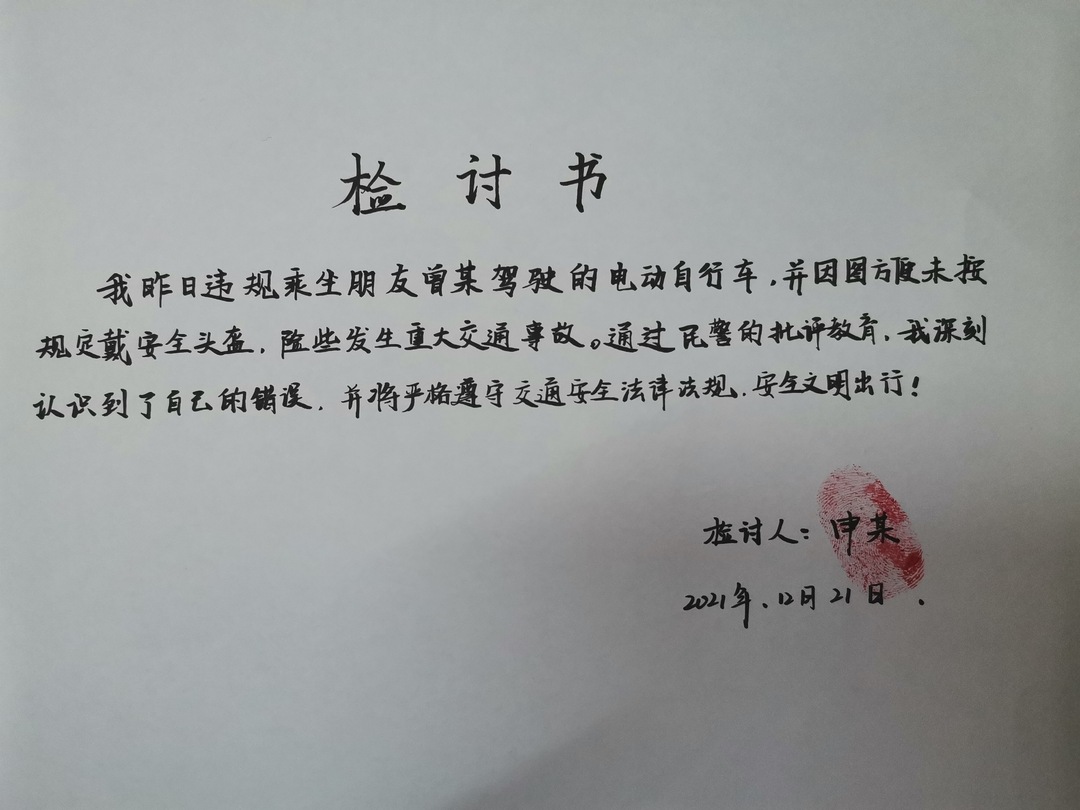 检讨书
我昨日违规乘坐朋友曾某驾驶的电动自行车，并因图方便未按
规定戴安全头盔，险些发生重大交通事故。通过民警的批评教育，我深刻
认识到了自己的错误，并将严格遵守交通安全法律法规，安全文明出行！
检讨人：申某
2021年、12月21日．